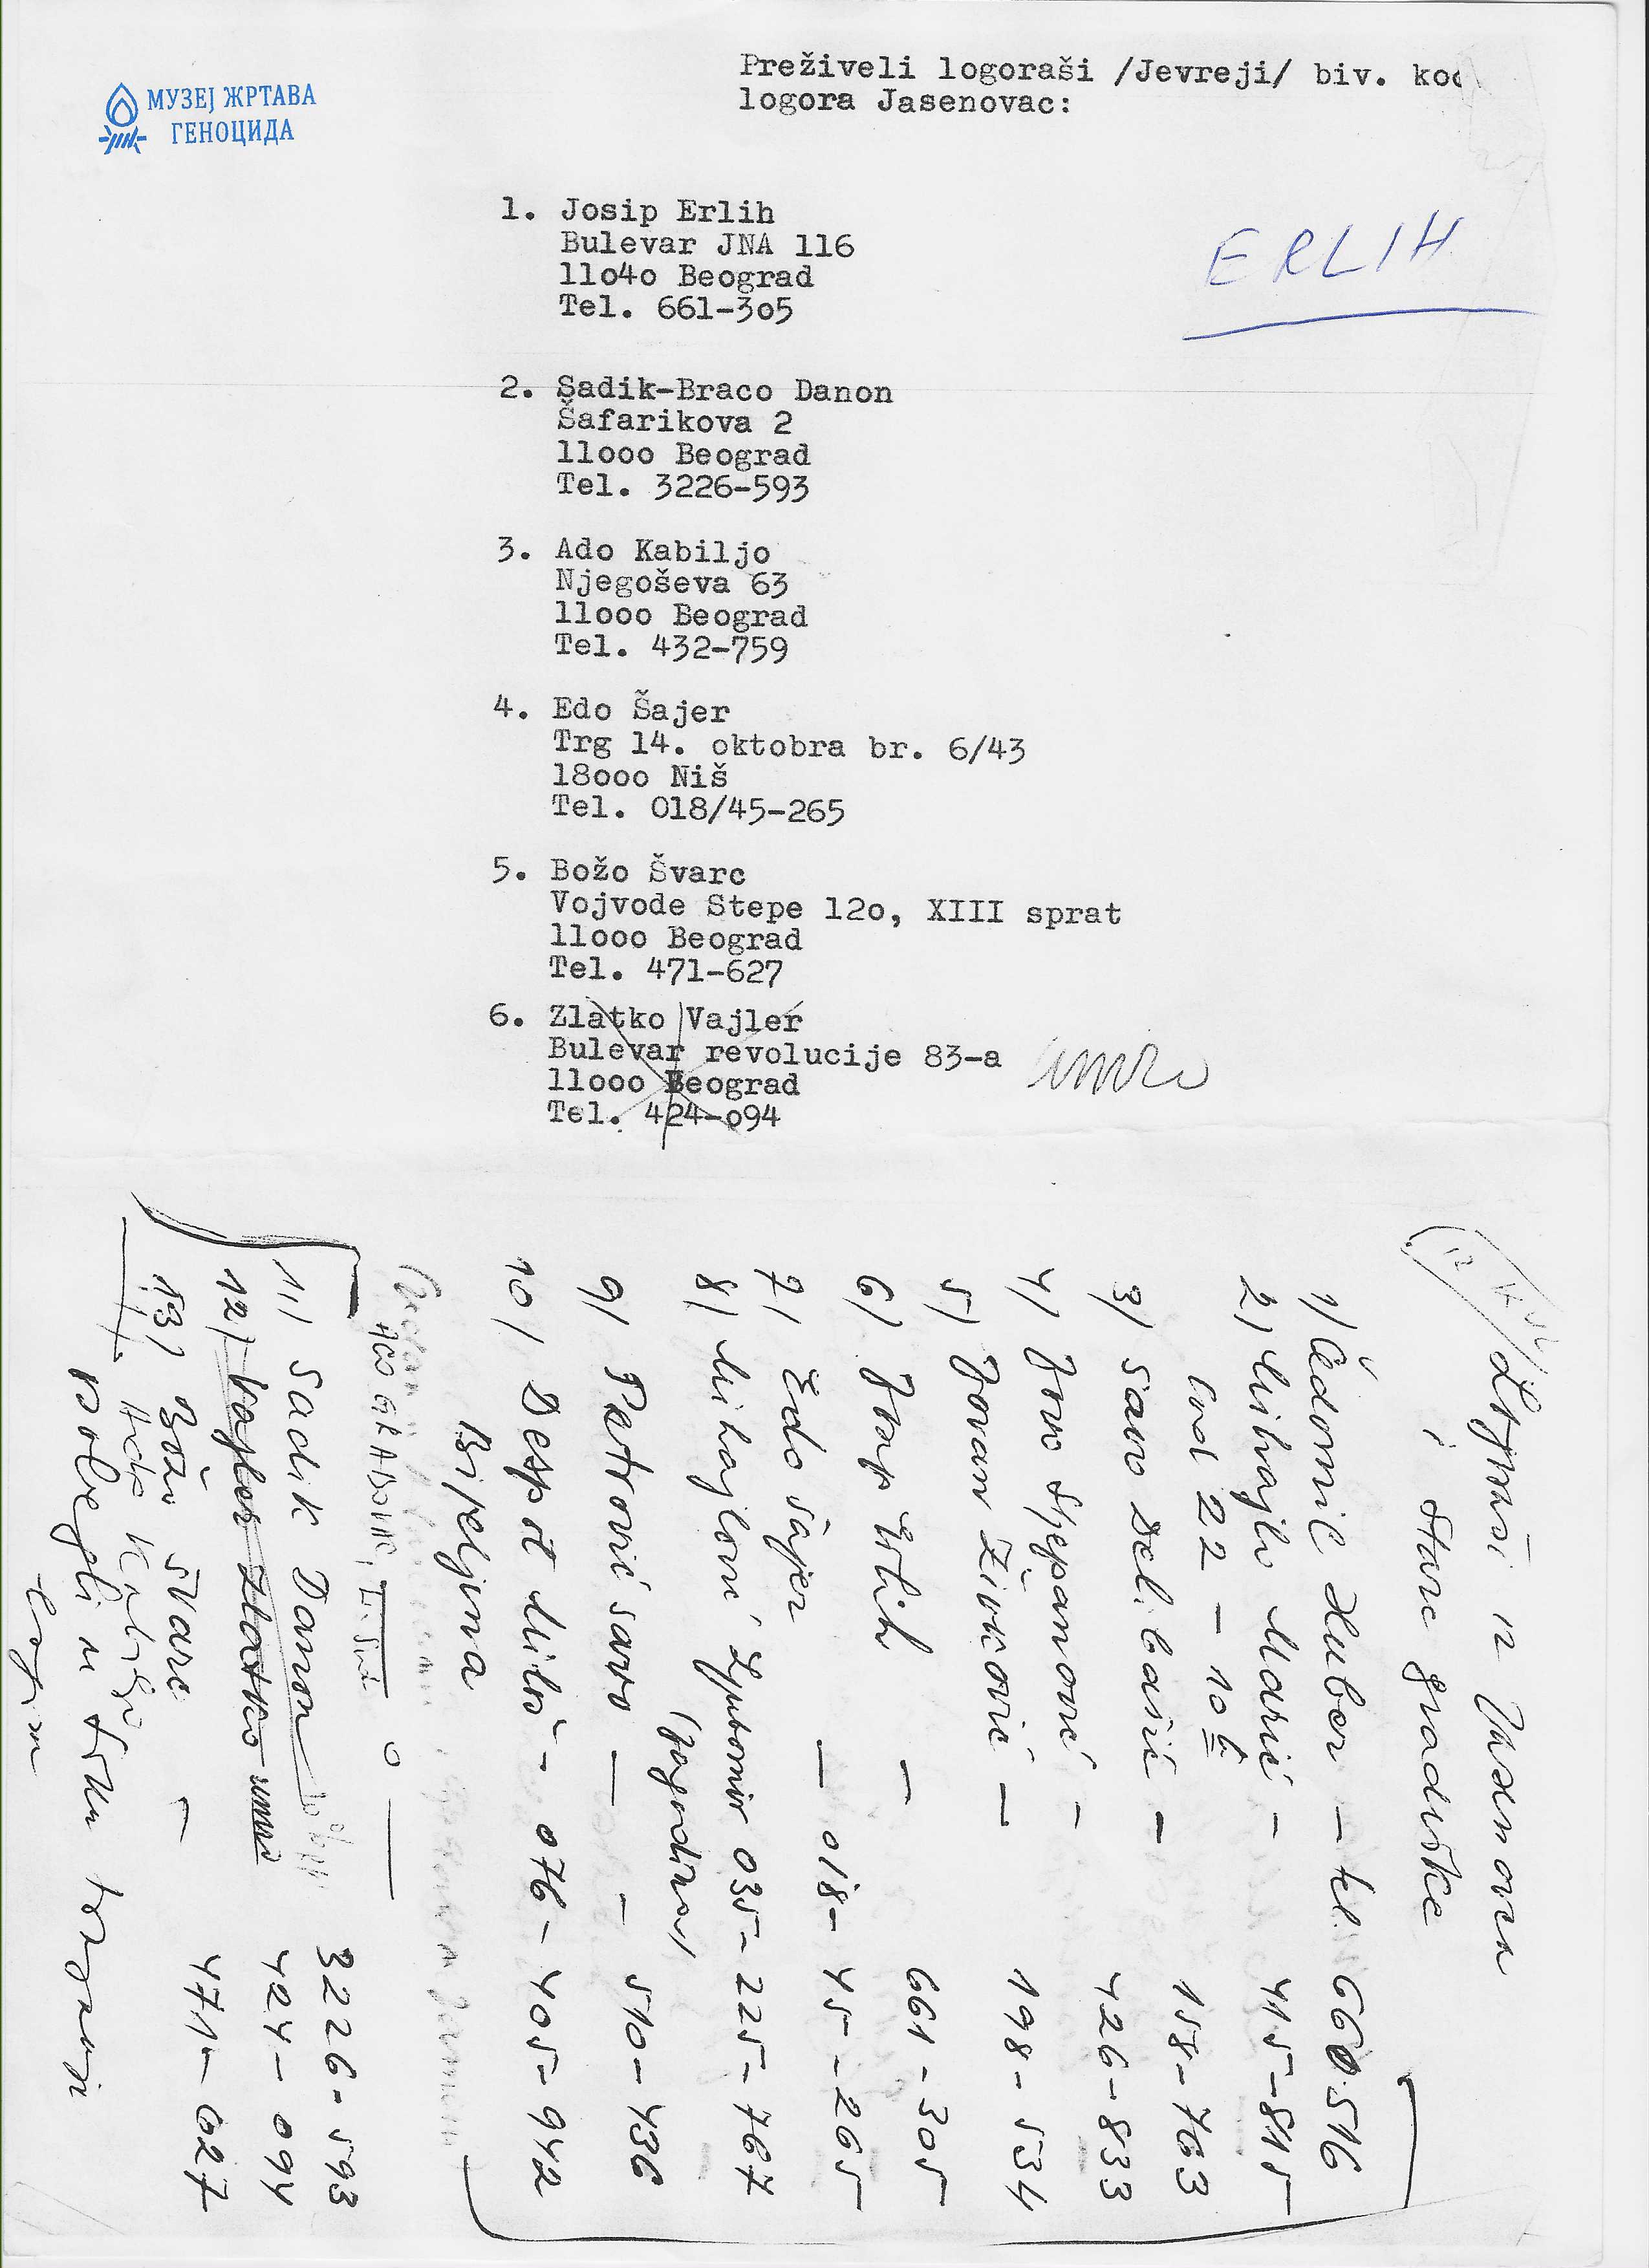 МУЗЕЈ ЖРТАВА
ГЕНОЦИДА
Preživeli logoraši /Jevreji/ biv. kod
logora Jasenovac:
ERLIH
1. Josip Erlih
Bulevar JNA 116
11o4o Beograd
Tel. 661-3o5
2. Sadik-Braco Danon
Šafarikova 2
11ooo Beograd
Tel. 3226-593
3. Ado Kabiljo
Njegoševa 63
11ooo Beograd
Tel. 432-759
4. Edo Šajer
Trg 14. oktobra br. 6/43
18ooo Niš
Tel. O18/45-265
5. Božo Švarc
Vojvode Stepe 12o, XIII sprat
11ooo Beograd
Tel. 471-627
6. Zlatko Vajler
Bulevar revolucije 83-a
11ooo Beograd
Tel. 424-o94
umro
iz Jasenovca
i Stare Gradiške
1) Čedomil Huber - tel. 660516
2) Mihajlo Marić - 415-815
od 22 - 10 158-763
3) Savo Delibašić - 426-833
4) Jovo Stjepanović -
5) Jovan Živković - 198-534
6) Josip Erlih - 661-305
7) Edo Šajer - 018-45-265
8) Mihajlović Ljubomir 035-225-767
(Jagodina)
9) Petrović Savo - 510-436
10) Despot Miloš - 076-405-942
Bijeljina
11) Sadik Danon 3226-593
12) Vajler Zlatko umro 424-094
13) Božo Švarc - 471-627
Ado Kabiljo
pobegli u